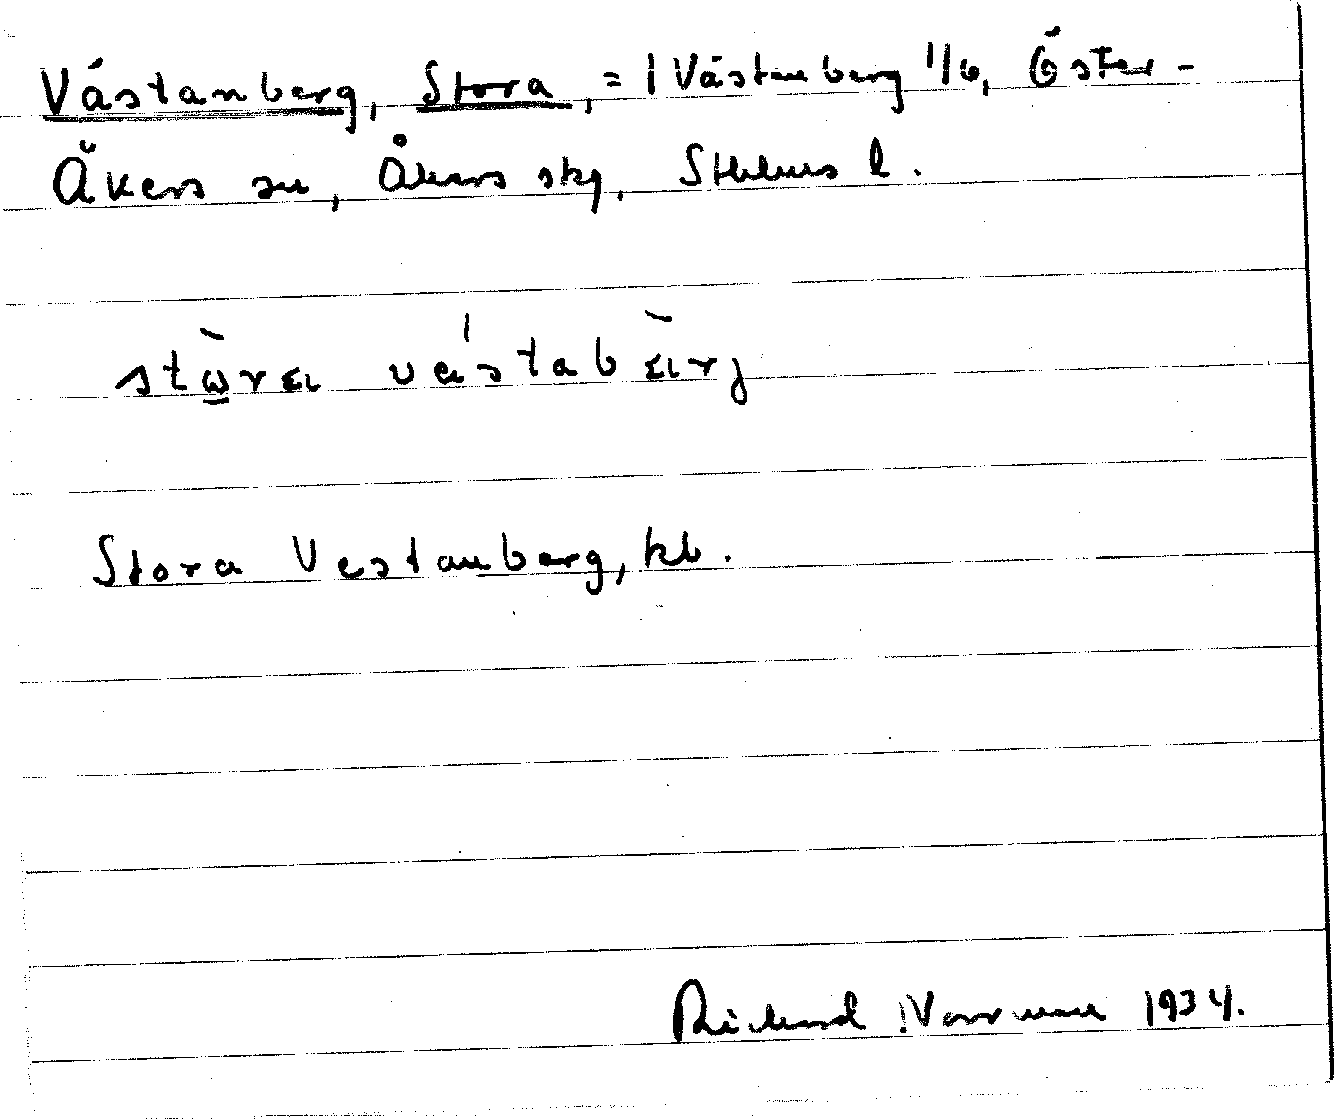 Västanberg, Stora, = 1 Västanberg 1/6, Öster-
Åkers sn, Åkers skg, Sthlms l.
Stora Vestanberg, kb.
Richard Norrman 1934.